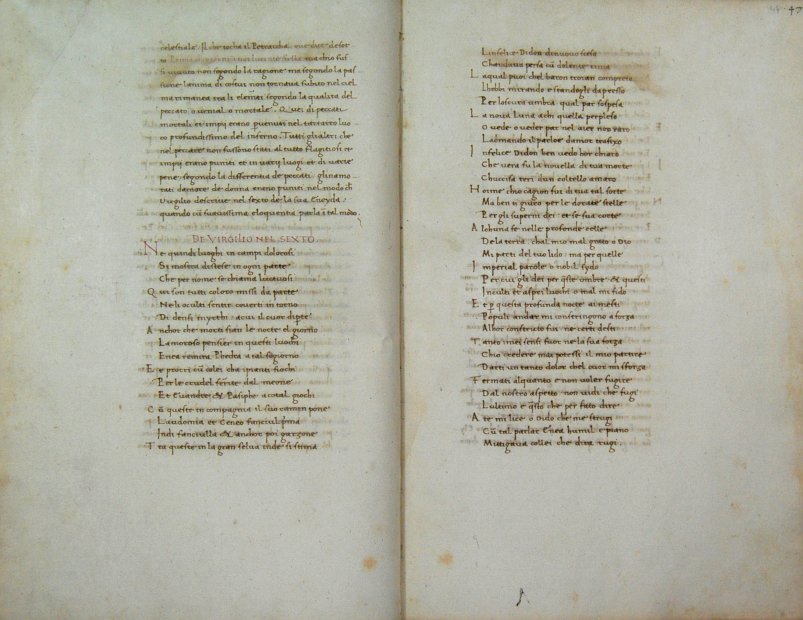 celestiale. Il che tocha il Petrarcha, ove dice
to ma chio fus
si vivuto non segondo la ragione ma segondo la pas
sione lanima di costui non tornava subito nel ciel
ma rimanea tra li elemẽti segondo la qualita del
peccato o venial o mortale. Quei di peccati
mortali et impij erano puniti nel tartaro luo
co profundissimo del inferno. Tutti gli altri che
nel peccare non fussono stati al tutto flagitiosi et
impij erano puniti et in varij luoghi et di varie
pene segondo la differentia de peccati. gli namo
rati damore de donna erano puniti nel modo ch
Virgilio descrive nel sexto de la sua Eneyda
quando cũ suavissima eloquentia parla i tal modo.
DE VIRGILIO NEL SEXTO
Ne quindi luoghi in campi dolorosi
Si mostra distese in ogni parte
Che per nome se chiama luctuosi
Qui son tutti coloro missi da parte
Ne li oculti sentir coverti in torno
Di densi myrthi acui il cuor diptẽ
Anchor che morti siati le nocte el giorno
Lamoroso pensier in questi luochi
Enea remira Phedra a tal sogiorno
Et procri cũ colei cha i pianti fiochi
Per le crudel ferite dal
Et Evandne & Pasiphe a cotal giochi
Cũ queste in compagnia il suo camin pone
Laudomia et Ceneo
Indi fanciulla & anchor poi garzone
Tra queste in la gran selva inde si stima
Linfelice Didon di nuovo scesa
Chandava persa cũ dolente rima
La qual puoi chel baron troian compreso
Lhebbi mirando e standogli da presso
Per loscura umbra qual par sospesa
La nova Luna a chi quella perplexo
O vede o veder par nel aere non raro
Lachrimando il parloe damor trafixo
Infelice Didon ben vedo hor chiaro
Che vera fu la novella di tua morte
Chuccisa teri dun coltello amaro
Hoime chio cagion fui di tua tal sorte
Ma ben ti giuro per le dorate stelle
Per gli superni dei et se sua corte
Alchuna fe nelle profonde celle
De la terra, chal mio mal grato o Dio
Mi parti del tuo lido ma per quelle
Imperial parole o nobil sydo
Per cui gli dei per q̃ste ombre & questi
Inculti et asperi luochi o mal mi fido
Et p questa profunda nocte ai mesti
Populi andar mi constringono a forza
Alhor constricto fui ne certi desti
Tanto i miei sensi fuor ne la sua forza
Chio credere mai potessi il mio partire
Darti un tanto dolor chel cuor mi sforza
Fermati alquanto e non voler fugire
Dal nostro aspetto non vidi che fugi
Lultimo e q̃sto che per fato dire
A te mi lice o Dido che me strugi
Cũ tal parlar Enea humil e piano
Mittigava collei che dira rugi.
47